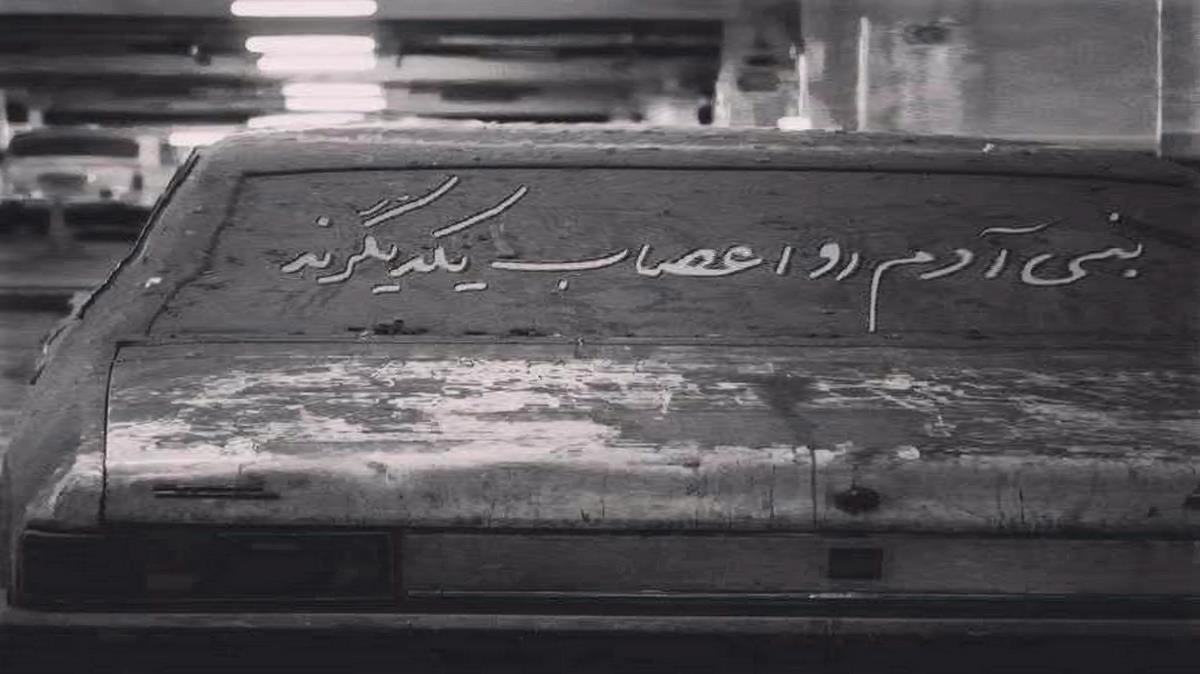 بنی آدم رو اعصاب یکدیگرند